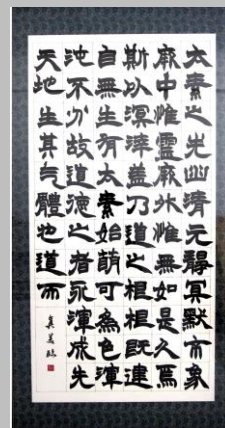 太素之先幽清元靜冥默象
厥中惟靈厥外惟無如是久焉
斯以溟涬蓋乃道之根根既建
自無生有太素始萌可為色渾
沌不分故道德之者渾成先
天地生其气體也道而